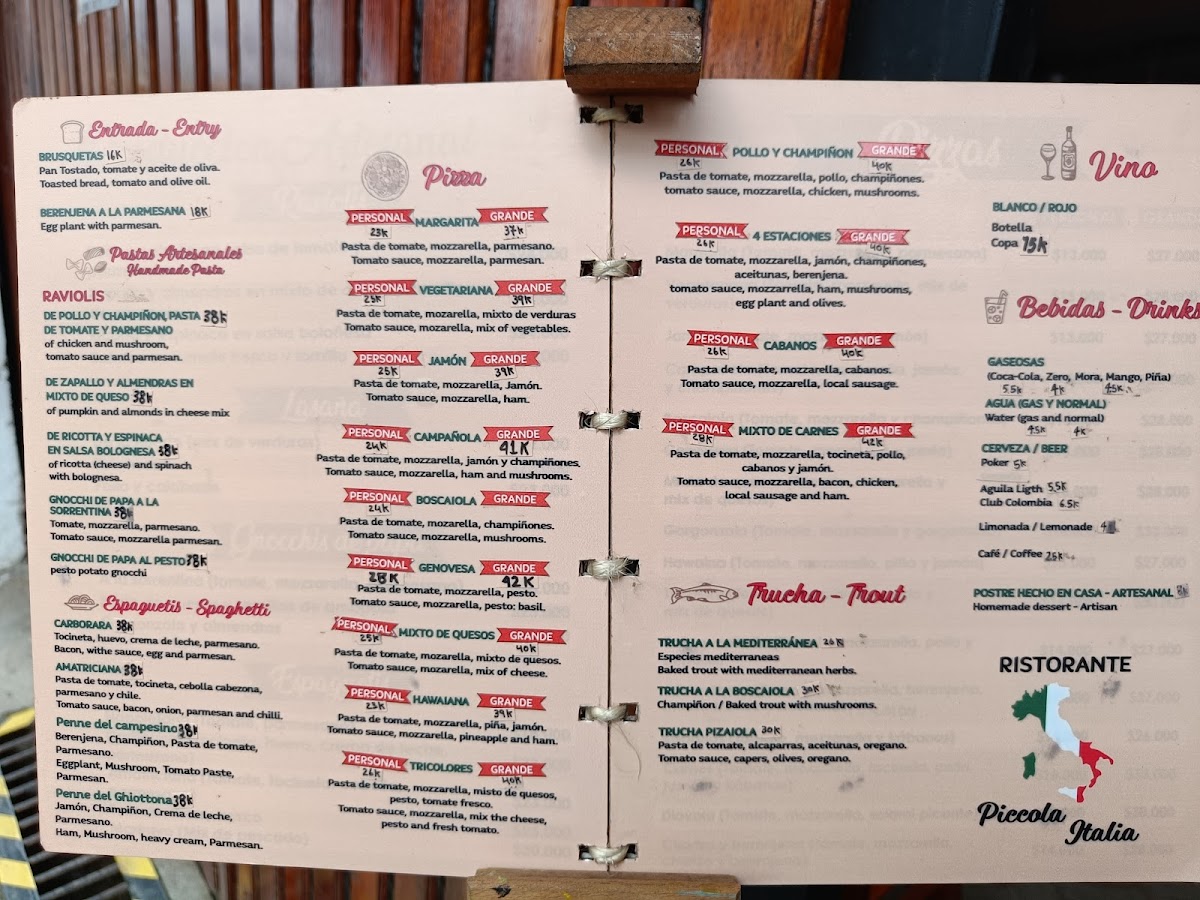 Entrada - Entry
BRUSQUETAS 16K
Pan Tostado, tomate y aceite de oliva.
Toasted bread, tomato and olive oil.
BERENJENA A LA PARMESANA 18K
Egg plant with parmesan.
Pastas Artesanales
Handmade Pasta
RAVIOLIS
DE POLLO Y CHAMPIÑON, PASTA 38K
DE TOMATE Y PARMESANO
of chicken and mushroom,
tomato sauce and parmesan.
DE ZAPALLO Y ALMENDRAS EN
MIXTO DE QUESO 38K
of pumpkin and almonds in cheese mix
DE RICOTTA Y ESPINACA
EN SALSA BOLOGNESA 38K
of ricotta (cheese) and spinach
with bolognesa.
GNOCCHI DE PAPA A LA
SORRENTINA 38K
Tomate, mozzarella, parmesano.
Tomate sauce, mozzarella parmesan.
GNOCCHI DE PAPA AL PESTO 38K
pesto potato gnocchi
Espaguetis - Spaghetti
CARBORARA 38K
Tocineta, huevo, crema de leche, parmesano.
Bacon, withe sauce, egg and parmesan.
AMATRICIANA 38K
Pasta de tomate, tocineta, cebolla cabezona,
parmesano y chile.
Tomato sauce, bacon, onion, parmesan and chilli.
Penne del campesino 38K
Berenjena, Champiñon, Pasta de tomate,
Parmesano.
Eggplant, Mushroom, Tomato Paste,
Parmesan.
Penne del Ghiottona 38K
Jamón, Champiñon, Crema de leche,
Parmesano.
Ham, Mushroom, heavy cream, Parmesan.
Pizza
PERSONAL MARGARITA GRANDE
23K 37K
Pasta de tomate, mozzarella, parmesano.
Tomato sauce, mozzarella, parmesan.
PERSONAL VEGETARIANA GRANDE
25K 39K
Pasta de tomate, mozarella, mixto de verduras
Tomato sauce, mozarella, mix of vegetables.
PERSONAL JAMÓN GRANDE
25K 39K
Pasta de tomate, mozzarella, Jamón.
Tomato sauce, mozzarella, ham.
PERSONAL CAMPAÑOLA GRANDE
24K 41K
Pasta de tomate, mozzarella, jamón y champiñones,
Tomato sauce, mozzarella, ham and mushrooms.
PERSONAL BOSCAIOLA GRANDE
24K
Pasta de tomate, mozzarella, champiñones.
Tomato sauce, mozzarella, mushrooms.
PERSONAL GENOVESA GRANDE
28K 42K
Pasta de tomate, mozzarella, pesto.
Tomato sauce, mozzarella, pesto: basil.
PERSONAL MIXTO DE QUESOS GRANDE
25K 40K
Pasta de tomate, mozarella, mixto de quesos.
Tomato sauce, mozzarella, mix of cheese.
PERSONAL HAWAIANA GRANDE
25K 39K
Pasta de tomate, mozzarella, piña, jamón.
Tomato sauce, mozzarella, pineapple and ham.
PERSONAL TRICOLORES GRANDE
26K 40K
Pasta de tomate, mozzarella, misto de quesos,
pesto, tomate fresco.
Tomato sauce, mozzarella, mix the cheese,
pesto and fresh tomato.
PERSONAL POLLO Y CHAMPIÑON GRANDE
26K 40K
Pasta de tomate, mozzarella, pollo, champiñones.
tomato sauce, mozzarella, chicken, mushrooms.
PERSONAL 4 ESTACIONES GRANDE
26K 40K
Pasta de tomate, mozzarella, jamón, champiñones,
aceitunas, berenjena.
tomato sauce, mozzarrella, ham, mushrooms,
egg plant and olives.
PERSONAL CABANOS GRANDE
26K 40K
Pasta de tomate, mozzarella, cabanos.
Tomato sauce, mozzarella, local sausage.
PERSONAL MIXTO DE CARNES GRANDE
28K 42K
Pasta de tomate, mozzarella, tocineta, pollo,
cabanos y jamón.
Tomato sauce, mozzarella, bacon, chicken,
local sausage and ham.
Trucha - Trout
TRUCHA A LA MEDITERRÁNEA 26K
Especies mediterraneas
Baked trout with mediterranean herbs.
TRUCHA A LA BOSCAIOLA 30K
Champiñon / Baked trout with mushrooms.
TRUCHA PIZAIOLA 30K
Pasta de tomate, alcaparras, aceitunas, oregano.
Tomato sauce, capers, olives, oregano.
Vino
BLANCO / ROJO
Botella
Copa 15K
Bebidas - Drinks
GASEOSAS
(Coca-Cola, Zero, Mora, Mango, Piña)
5.5K 4K 4.5K
AGUA (GAS Y NORMAL)
Water (gas and normal)
4.5K 4K
CERVEZA / BEER
Poker 5K
Aguila Ligth 5,5K
Club Colombia 6.5K
Limonada / Lemonade
Café / Coffee 2.5K
POSTRE HECHO EN CASA - ARTESANAL
Homemade dessert - Artisan
RISTORANTE
Piccola
Italia